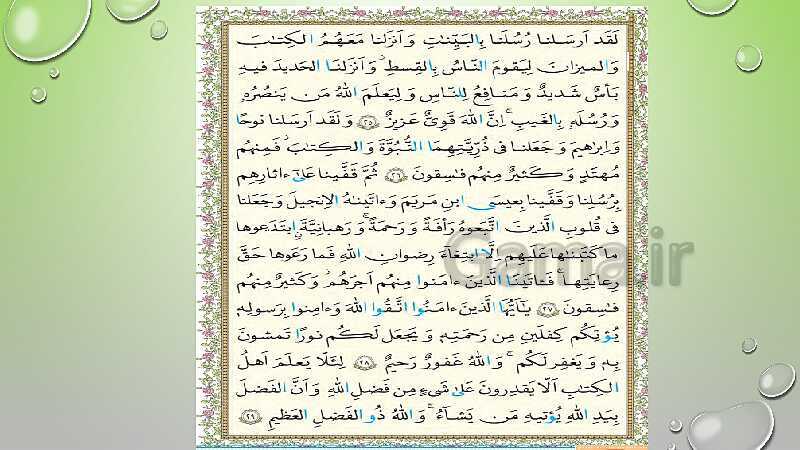 لَقَد اَرسَلنا رُسُلَنا بِالبَيِّناتِ وَ اَنزَلنا مَعَهُمُ الكِتابَ
وَ الميزانَ لِيَقومَ النّاسُ بِالقِسطِ وَ اَنزَلنَا الحَديدَ فيهِ
بَأسٌ شَديدٌ وَ مَنافِعُ لِلنّاسِ وَ لِيَعلَمَ اللهُ مَن يَنصُرُهُ
وَ رُسُلَهُ بِالغَيبِ اِنَّ اللهَ قَوِيٌّ عَزيزٌ ٢٥ وَ لَقَد اَرسَلنا نوحًا
وَ اِبراهيمَ وَ جَعَلنا فى ذُرِّيَّتِهِمَا النُّبُوَّةَ وَ الكِتابَ فَمِنهُم
مُهتَدٍ وَ كَثيرٌ مِنهُم فاسِقونَ ٢٦ ثُمَّ قَفَّينا عَلىٰ ءاثارِهِم
بِرُسُلِنا وَ قَفَّينا بِعيسَى ابنِ مَريَمَ وَ ءاتَيناهُ الاِنجيلَ وَ جَعَلنا
فى قُلوبِ الَّذينَ اتَّبَعوهُ رَأفَةً وَ رَحمَةً وَ رَهبانِيَّةً ابتَدَعوها
ما كَتَبناها عَلَيهِم اِلَّا ابتِغاءَ رِضوانِ اللهِ فَما رَعَوها حَقَّ
رِعايَتِها فَـٔاتَينَا الَّذينَ ءامَنوا مِنهُم اَجرَهُم وَ كَثيرٌ مِنهُم
فاسِقونَ ٢٧ يا اَيُّهَا الَّذينَ ءامَنُوا اتَّقُوا اللهَ وَ ءامِنوا بِرَسولِهِ
يُؤتِكُم كِفلَينِ مِن رَحمَتِهِ وَ يَجعَل لَكُم نورًا تَمشونَ
بِهِ وَ يَغفِر لَكُم وَ اللهُ غَفورٌ رَحيمٌ ٢٨ لِئَلّا يَعلَمَ اَهلُ
الكِتابِ اَلّا يَقدِرونَ عَلىٰ شَىءٍ مِن فَضلِ اللهِ وَ اَنَّ الفَضلَ
بِيَدِ اللهِ يُؤتيهِ مَن يَشاءُ وَ اللهُ ذُو الفَضلِ العَظيمِ ٢٩
Gama.ir